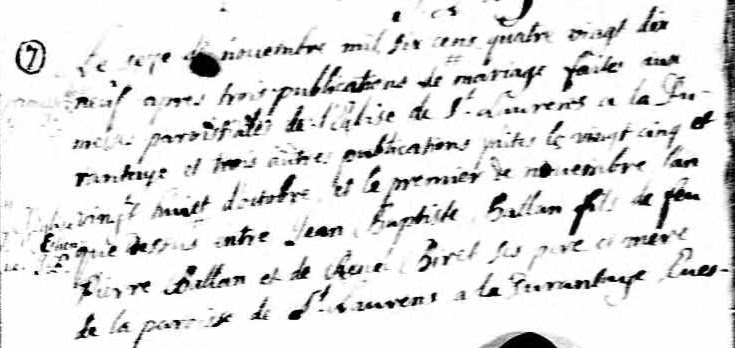 (7) Le seze de novembre mil six cens quatre vingt dix
neuf apres trois publications de mariage faites aux
messes paroissiales de l'Eglise de St Laurens a la Du-
rantaye et trois autres publications faites le vingt cinq et
vingt huict d'octobre et le premier de novembre l'an
que dessus entre Jean Baptiste Ballan fils de feu
Pierre Ballan et de Renée Biret ses pere et mere
de la paroisse de St Laurens a la Durantaye Eves-